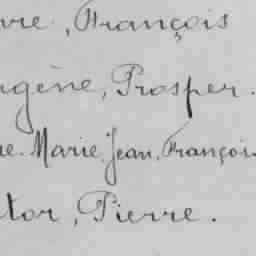 vre, François
ugène, Prosper.
ne. Marie. Jean. François.
ctor, Pierre.